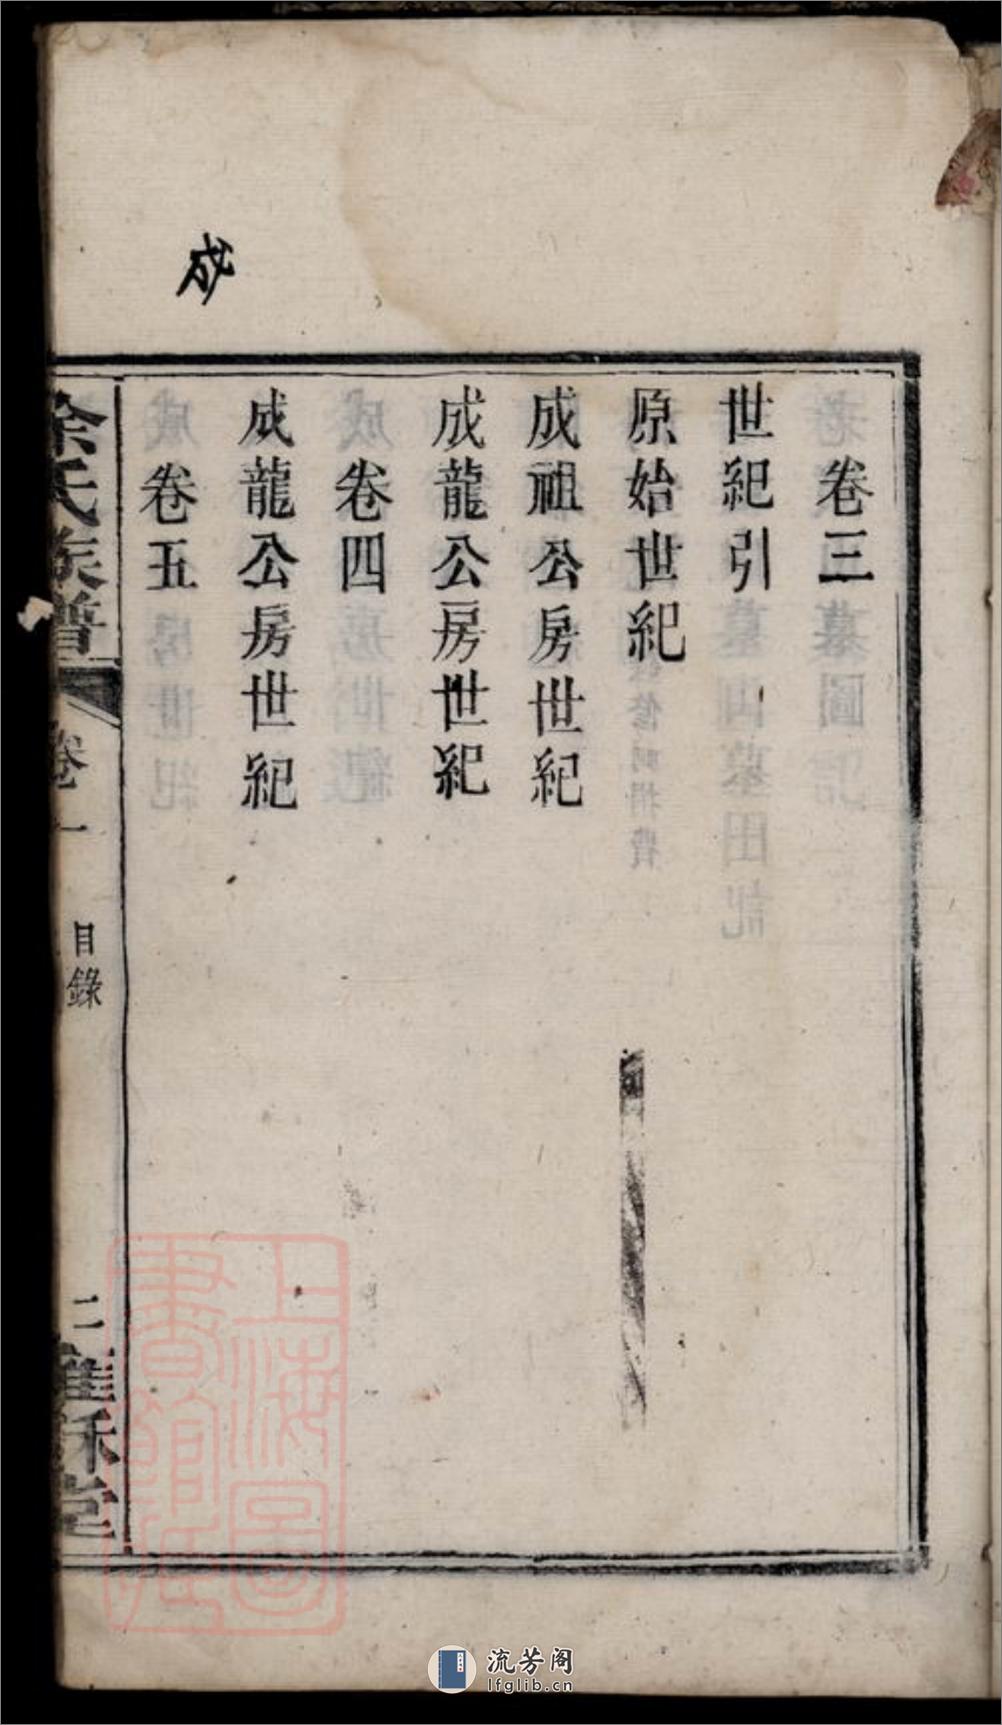 卷三
世紀引
原始世紀
成祖公房世紀
成龍公房世紀
卷四
成龍公房世紀
卷五
氏族譜
卷一
目錄
二
堂
上海圖
書館藏
流芳阁
lfglib.cn